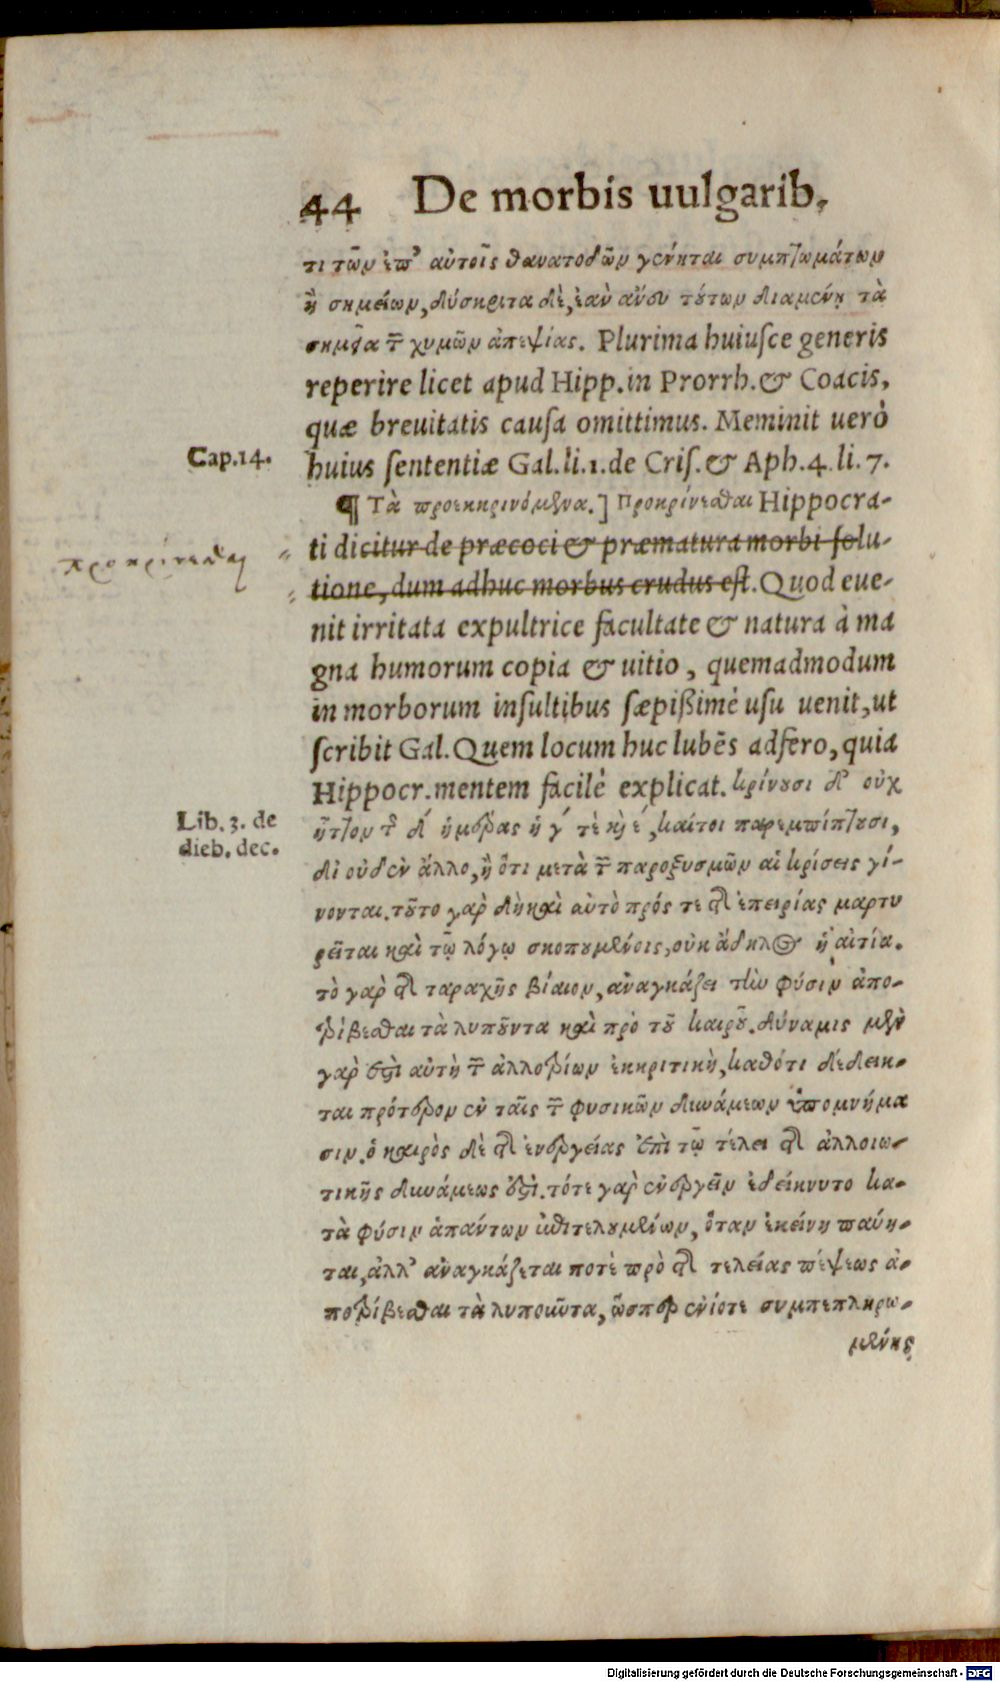 44 De morbis uulgarib.
τι τῶν ἐπ' αὐτοῖς θανατωδῶν γένηται συμπτωμάτων
ἢ σημείων, δύσκριτα δὲ, ἐὰν ἄνευ τούτων διαμένῃ τὰ
σημεῖα τῆς χυμῶν ἀπεψίας. Plurima huiuſce generis
reperire licet apud Hipp. in Prorrh. & Coacis,
quæ breuitatis cauſa omittimus. Meminit uerò
Cap. 14.
huius ſententiæ Gal. li. 1. de Criſ. & Aph. 4. li. 7.
¶ Τὰ προεκκρινόμενα.] Προκρίνεσθαι Hippocra-
προκρίνεσθαι
ti dicitur de præcoci & præmatura morbi ſolu-
tione, dum adhuc morbus crudus eſt. Quod eue-
nit irritata expultrice facultate & natura à ma
gna humorum copia & uitio, quemadmodum
in morborum inſultibus ſæpißimè uſu uenit, ut
ſcribit Gal. Quem locum huc lubēs adfero, quia
Hippocr. mentem facilè explicat. κρίνουσι δ' οὐχ
Lib. 3. de
dieb. dec.
ἧττον τῆς δ' ἡμέρας ἡ γ' τὲ καὶ ἡ ε', καίτοι παρεμπίπτουσι,
δι' οὐδὲν ἄλλο, ἢ ὅτι μετὰ τῶν παροξυσμῶν αἱ κρίσεις γί-
νονται. τοῦτο γὰρ δὴ καὶ αὐτὸ πρός τε τῆς ἐπειρίας μαρτυ
ρεῖται καὶ τῷ λόγῳ σκοπουμένοις, οὐκ ἄδηλος ἡ αἰτία.
τὸ γὰρ τῆς ταραχῆς βίαιον, ἀναγκάζει τὴν φύσιν ἀπο-
ῥίβεσθαι τὰ λυποῦντα καὶ πρὸ τοῦ καιροῦ. δύναμις μὲν
γάρ ἐστι αὐτὴ τῶν ἀλλοτρίων ἐκκριτικὴ, καθότι δέδεικ-
ται πρότερον ἐν ταῖς τῶν φυσικῶν δυνάμεων ὑπομνήμα
σιν. ὁ καιρὸς δὲ τῆς ἐνεργείας ἐπὶ τῷ τέλει τῆς ἀλλοιω-
τικῆς δυνάμεως ἐστί. τότε γὰρ ἐνεργεῖν ἐδείκνυτο κα-
τὰ φύσιν ἁπάντων ἐπιτελουμένων, ὅταν ἐκείνη παύη-
ται, ἀλλ' ἀναγκάζεται ποτὲ πρὸ τῆς τελείας πέψεως ἀ-
ποῤῥίβεσθαι τὰ λυποῦντα, ὥσπερ ἐνίοτε συμπεπληρω-
μένης
Digitalisierung gefördert durch die Deutsche Forschungsgemeinschaft - DFG